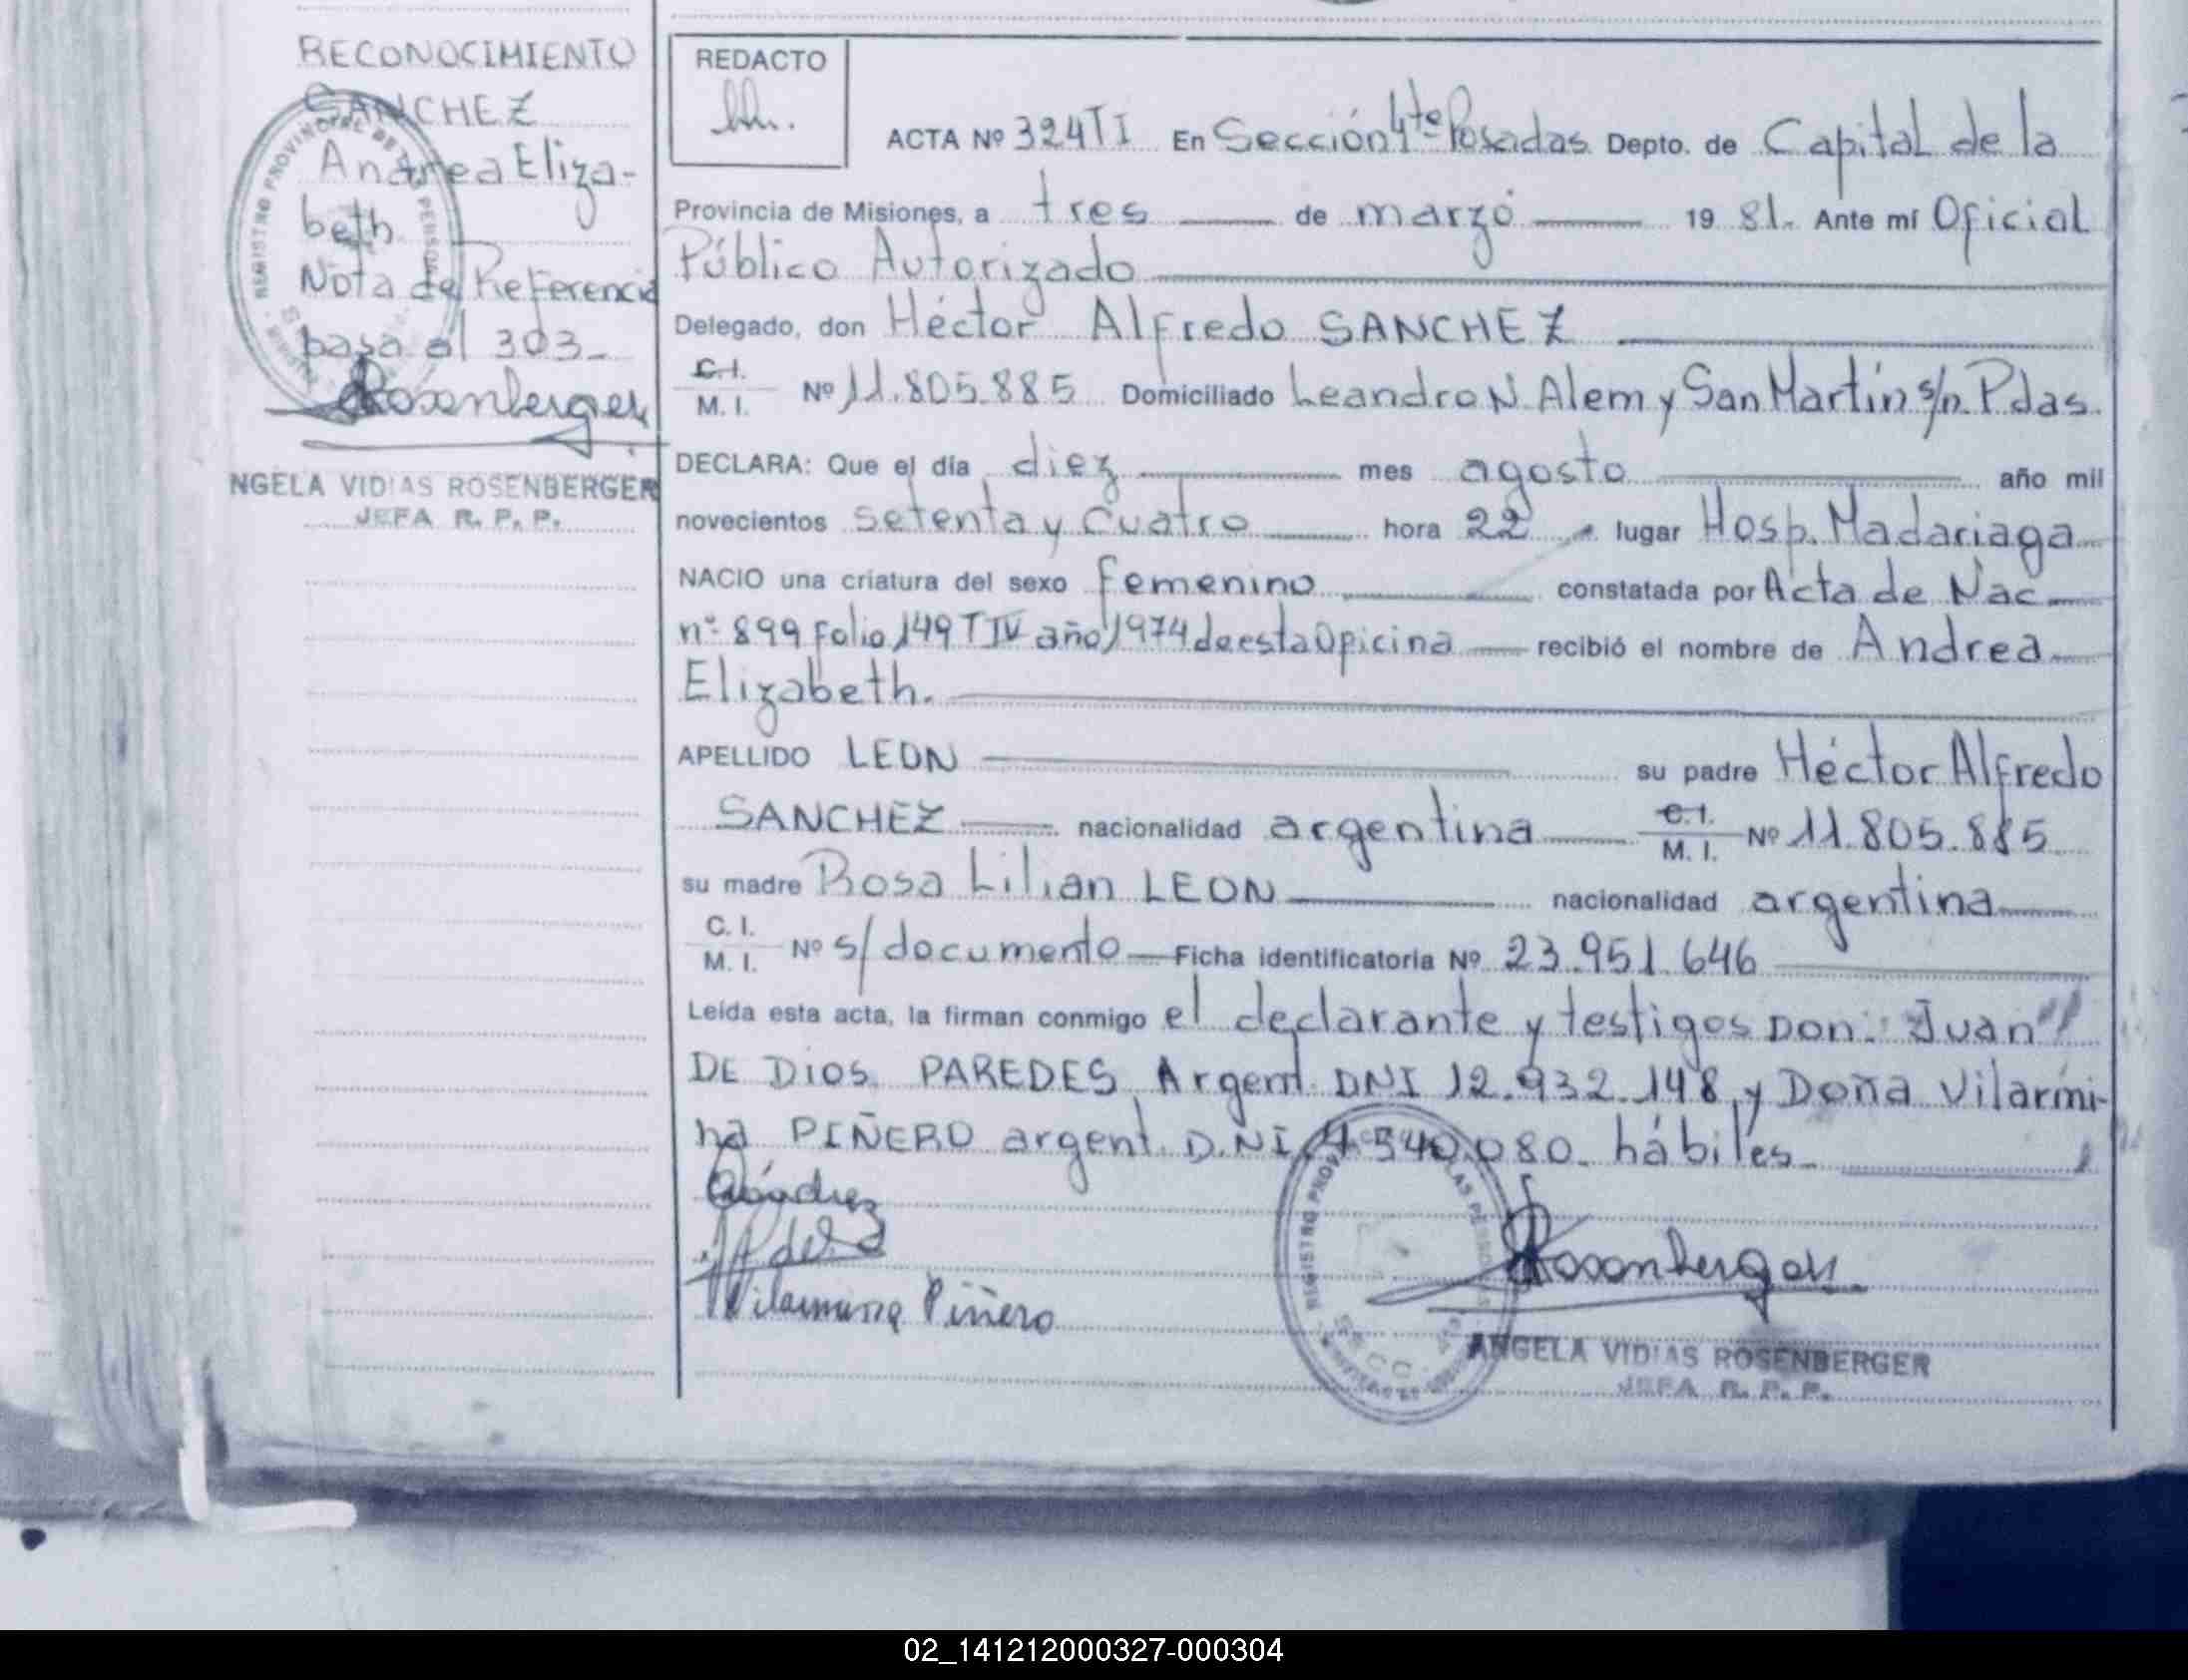 RECONOCIMIENTO
SANCHEZ
Andrea Eliza-
beth
Nota de Referencia
pasa al 303-
Rosenberger
NGELA VIDIAS ROSENBERGER
JEFA R. P. P.
REDACTO
ACTA Nº 324 TI En Sección 4ta Posadas Depto. de Capital de la
Provincia de Misiones, a tres de marzo 19 81. Ante mí Oficial
Público Autorizado
Delegado, don Héctor Alfredo SANCHEZ
C.I.
M. I. Nº 11.805.885 Domiciliado Leandro N. Alem y San Martín s/n. Pdas.
DECLARA: Que el día diez mes agosto año mil
novecientos setenta y cuatro hora 22 lugar Hosp. Madariaga
NACIO una criatura del sexo femenino constatada por Acta de Nac
nº 899 folio 149 T IV año 1974 de esta Oficina recibió el nombre de Andrea
Elizabeth.
APELLIDO LEON su padre Héctor Alfredo
SANCHEZ nacionalidad argentina C.I.
M. I. Nº 11.805.885
su madre Rosa Lilian LEON nacionalidad argentina
C. I.
M. I. Nº s/documento Ficha identificatoria Nº 23.951.646
Leída esta acta, la firman conmigo el declarante y testigos Don: Juan
DE DIOS PAREDES Argent. DNI 12.932.148 y Doña Vilarmi-
na PIÑERO argent. D.NI 4.540.080. hábiles
Vilarmina Piñero
Rosenberger
REGISTRO PROV
SECC
ANGELA VIDIAS ROSENBERGER
JEFA R. P. P.
02_141212000327-000304